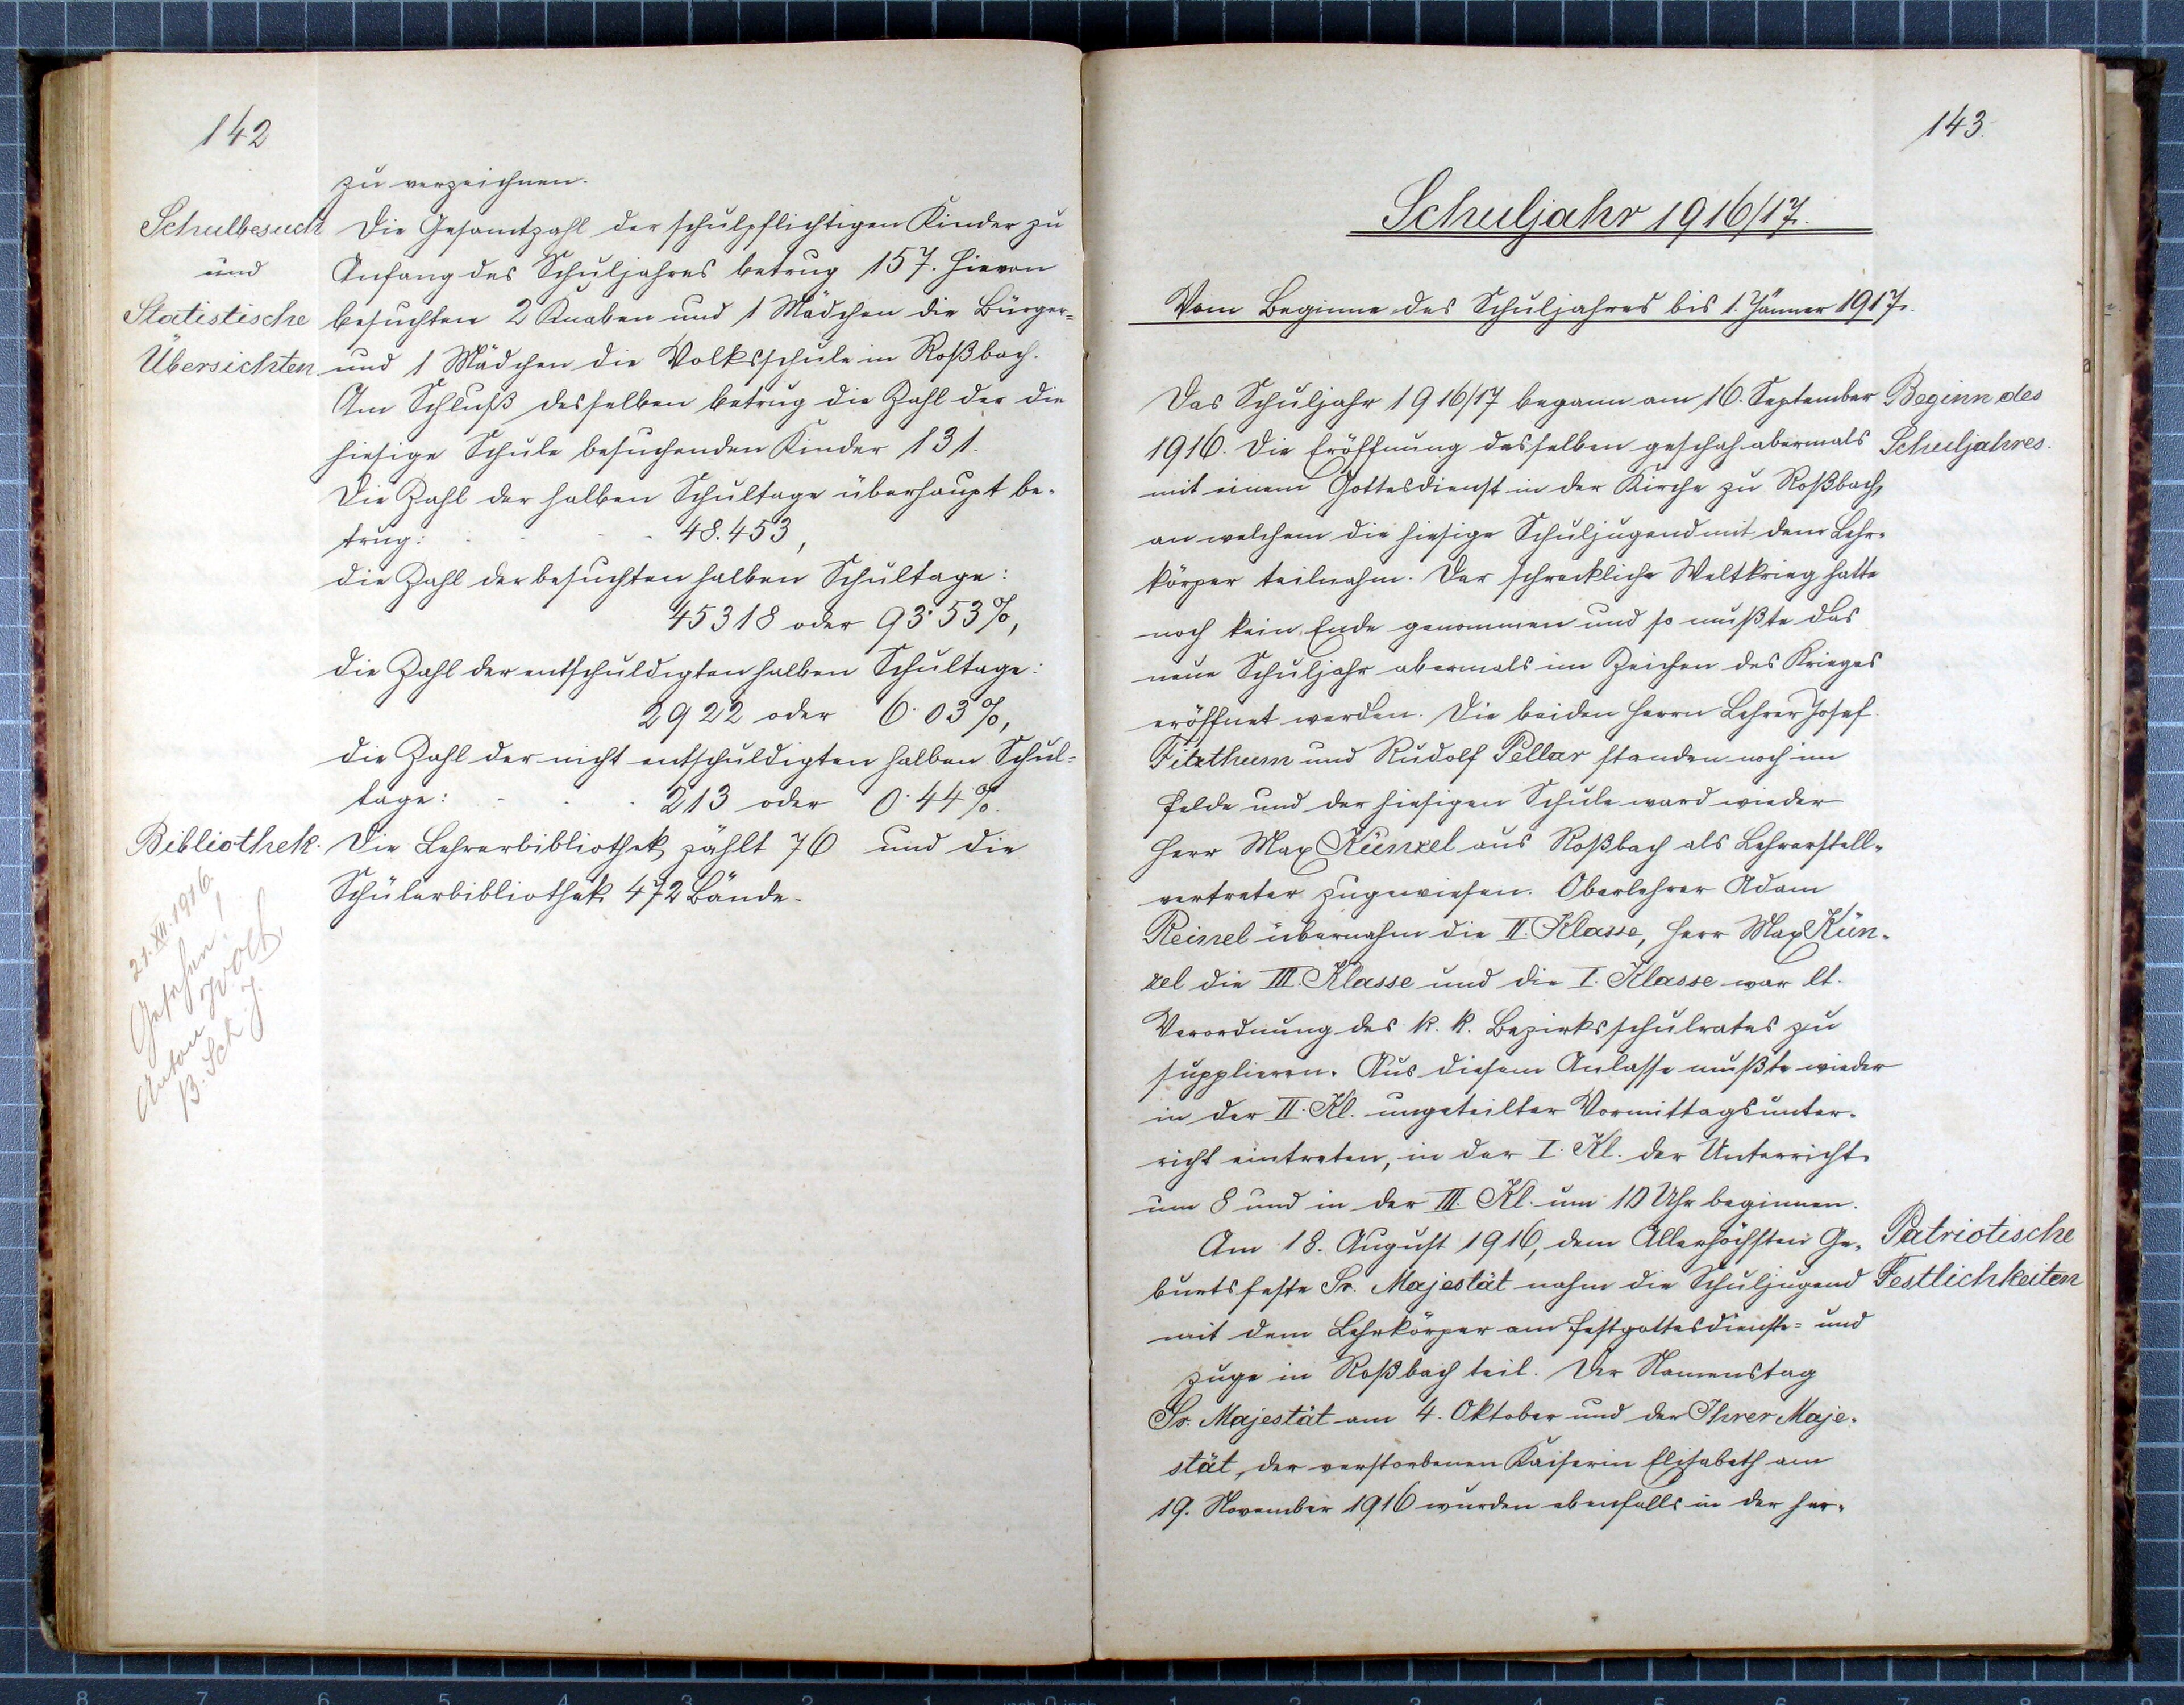 142
zu verzeichnen.
Schulbesuch
und
Statistische
Übersichten
Die Gesamtzahl der schulpflichtigen Kinder zu
Anfang des Schuljahres betrug 157. Hievon
besuchten 2 Knaben und 1 Mädchen die Bürger-
und 1 Mädchen die Volksschule in Roßbach.
Am Schluß desselben betrug die Zahl der die
hiesige Schule besuchenden Kinder 131.
Die Zahl der halben Schultage überhaupt be-
trug: . . . 48.453,
die Zahl der besuchten halben Schultage:
45318 oder 93·53%,
die Zahl der entschuldigten halben Schultage:
2922 oder 6·03%,
die Zahl der nicht entschuldigten halben Schul-
tage: . . . 213 oder 0·44%.
Bibliothek.
Die Lehrerbibliothek zählt 76 und die
Schülerbibliothek 472 Bände.
21. XII. 1916.
Gesehen!
Anton
B. Sch. J.
143.
Schuljahr 1916/17.
Vom Beginne des Schuljahres bis 1. Jänner 1917.
Beginn des
Schuljahres.
Das Schuljahr 1916/17 begann am 16. September
1916. Die Eröffnung desselben geschah abermals
mit einem Gottesdienst in der Kirche zu Roßbach,
an welchem die hiesige Schuljugend mit dem Lehr-
körper teilnahm. Der schreckliche Weltkrieg hatte
noch kein Ende genommen und so mußte das
neue Schuljahr abermals im Zeichen des Krieges
eröffnet werden. Die beiden Herrn Lehrer Josef
Fitzthum und Rudolf Pellar standen noch im
Felde und der hiesigen Schule ward wieder
Herr Max Künzel aus Roßbach als Lehrerstell-
vertreter zugewiesen. Oberlehrer Adam
Reinel übernahm die II. Klasse, Herr Max Kün-
zel die III. Klasse und die I. Klasse war lt.
Verordnung des k. k. Bezirksschulrates zu
supplieren. Aus diesem Anlasse mußte wieder
in der II. Kl. ungeteilter Vormittagsunter-
richt eintreten, in der I. Kl. der Unterricht
um 8 und in der III. Kl. um 10 Uhr beginnen.
Patriotische
Festlichkeiten
Am 18. August 1916, dem Allerhöchsten Ge-
burtsfeste Sr. Majestät nahm die Schuljugend
mit dem Lehrkörper am Festgottesdienste- und
zuge in Roßbach teil. Der Namenstag
Sr. Majestät am 4. Oktober und der Ihrer Maje-
stät, der verstorbenen Kaiserin Elisabeth am
19. November 1916 wurden ebenfalls in der her-